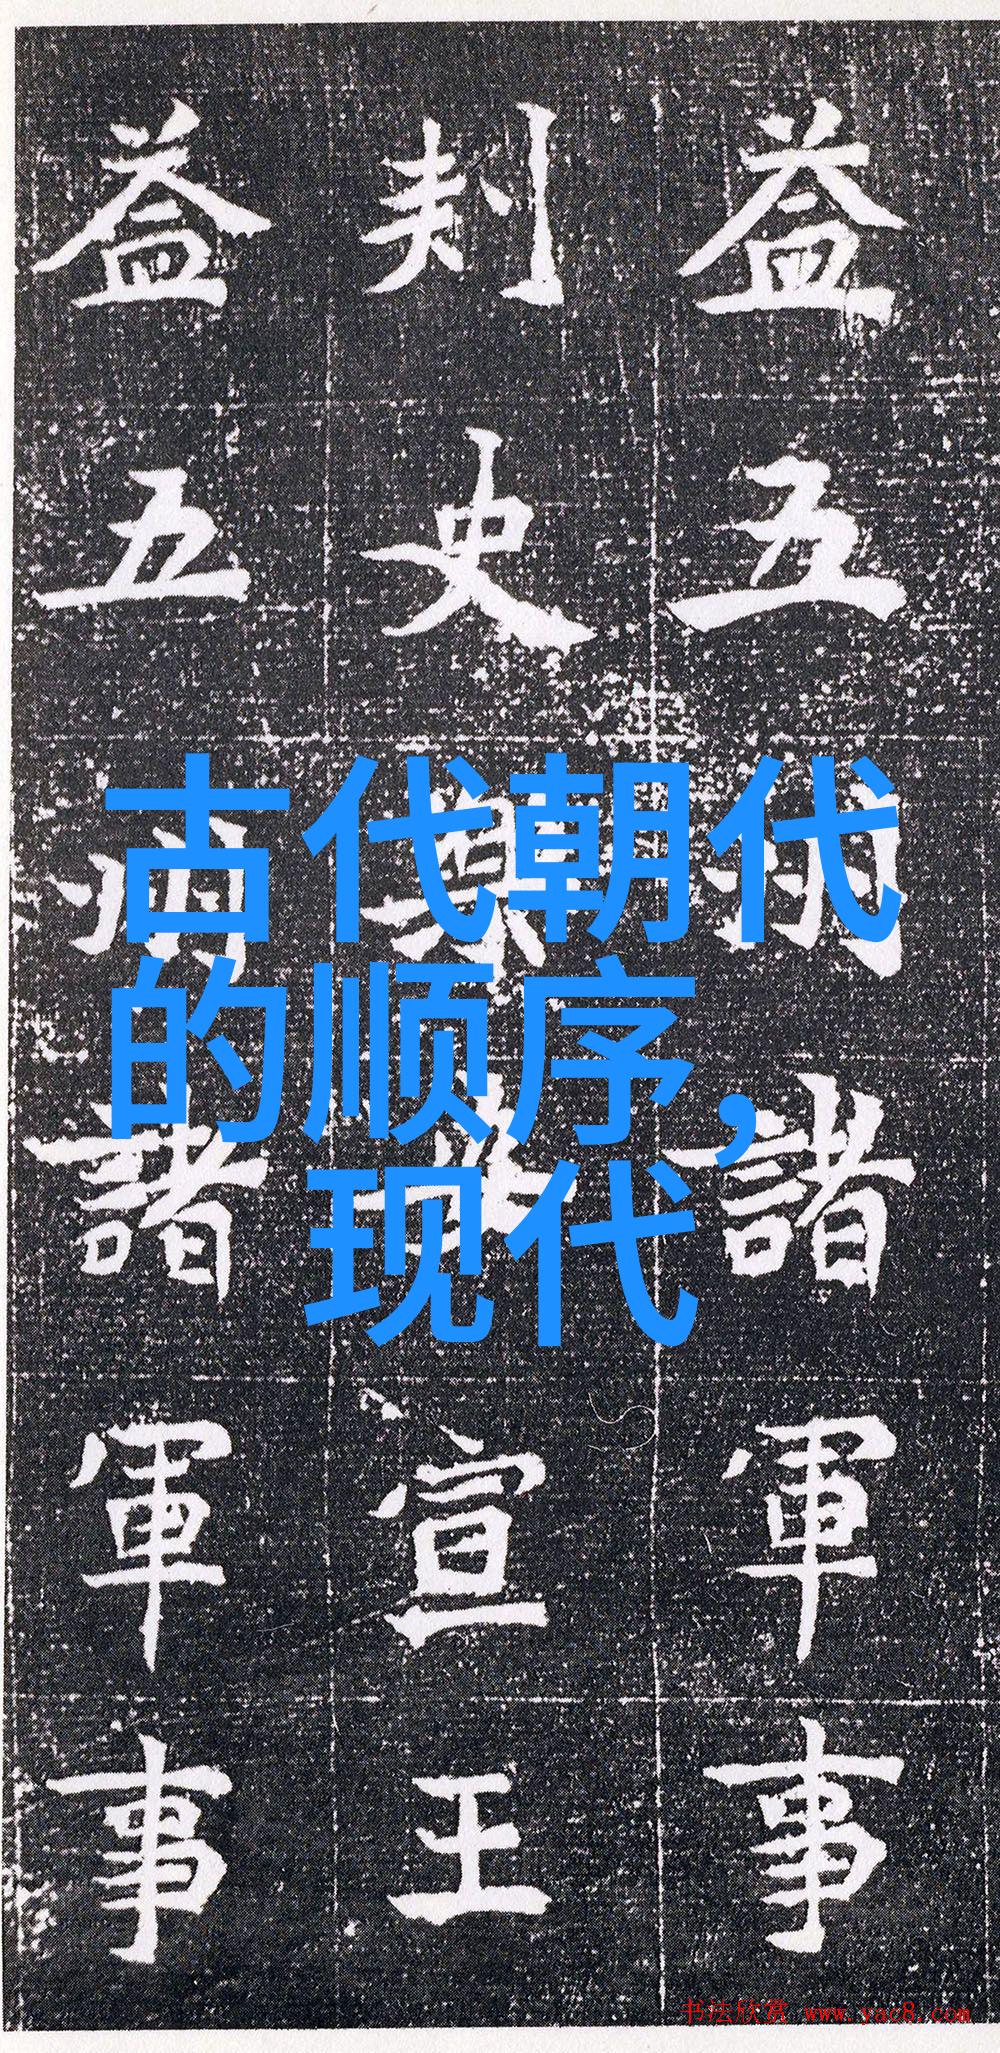 益五州諸軍事
刾史宣王
益五州諸軍事
古代朝代
的顺序，
现代
书法欣赏 www.yac8.com